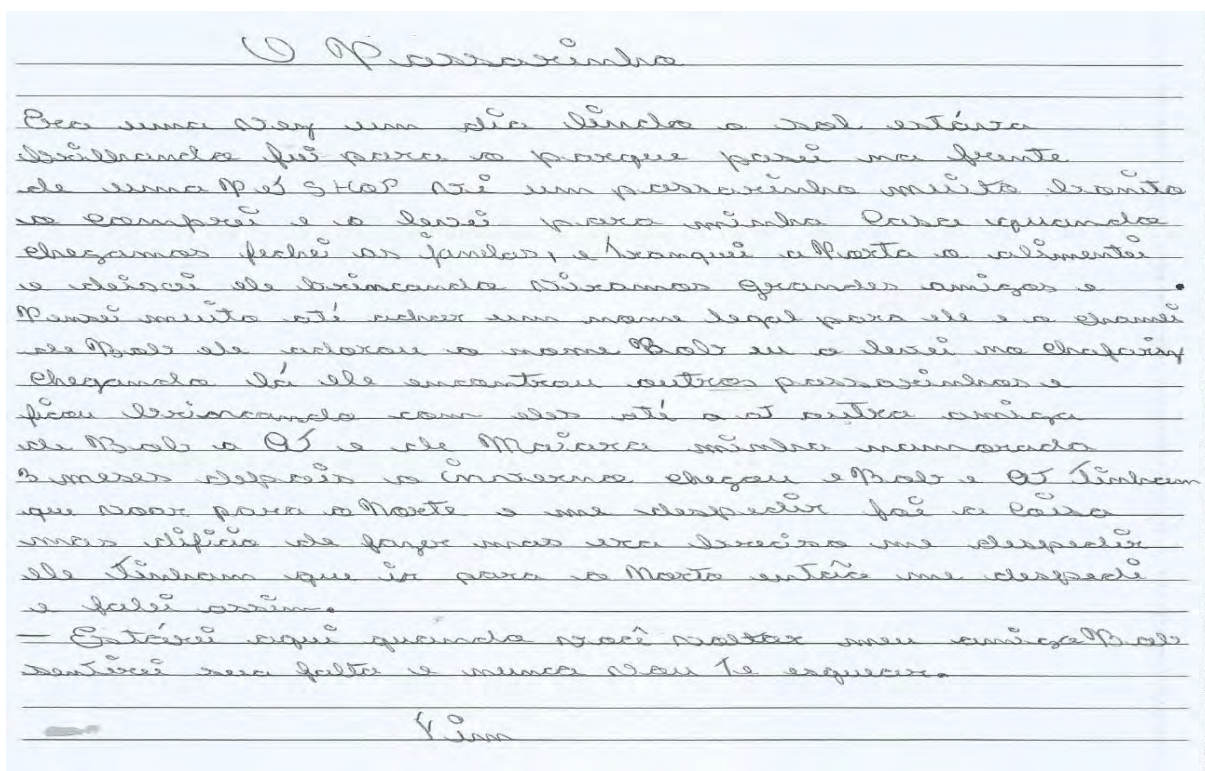 O Passarinho
Era uma vez um dia lindo o sol estáva
brilhando fui para o parque pasei na frente
de uma PéT SHOP vi um passarinho muito bonito
o comprei e o levei para minha Casa quando
chegamos fechei as janelas, e tranquei a Porta o alimentei
e deiscei ele brincando viramos grandes amigos e
Pensei muito até achar um nome legal para ele e o chamei
de Bob ele adorou o nome Bob eu o levei no chafariz
chegando lá ele encontrou outros passarinhos e
ficou brincando com eles até a outra amiga
de Bob a e de Maiara minha namorada
3 meses depois o inverno chegou e Bob e Tinham
que voar para o Norte e me despedir foi a Coisa
mas dificio de fazer mas era preciso me despedir
ele Tinham que ir para o Norte então me despedi
e falei assim.
— Estárei aqui quando você voltar meu amigo Bob
sentirei sua falta e nunca vou Te esquecer.
Fim